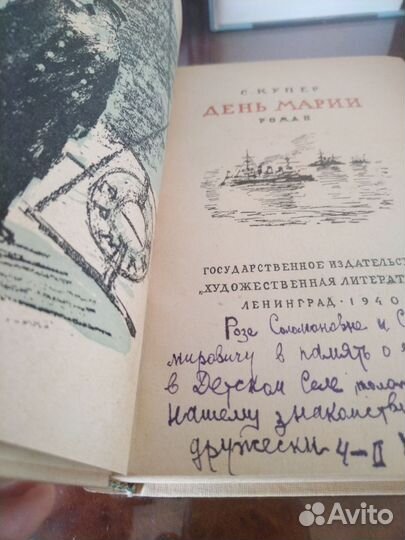 С. КУПЕР
ДЕНЬ МАРИИ
РОМАН
ГОСУДАРСТВЕННОЕ ИЗДАТЕЛЬСТ
„ХУДОЖЕСТВЕННАЯ ЛИТЕРАТ
ЛЕНИНГРАД · 1940
Розе Соломоновне и С
мировичу в память о
в Детском Селе
нашему знакомств
дружески 4–II
Avito